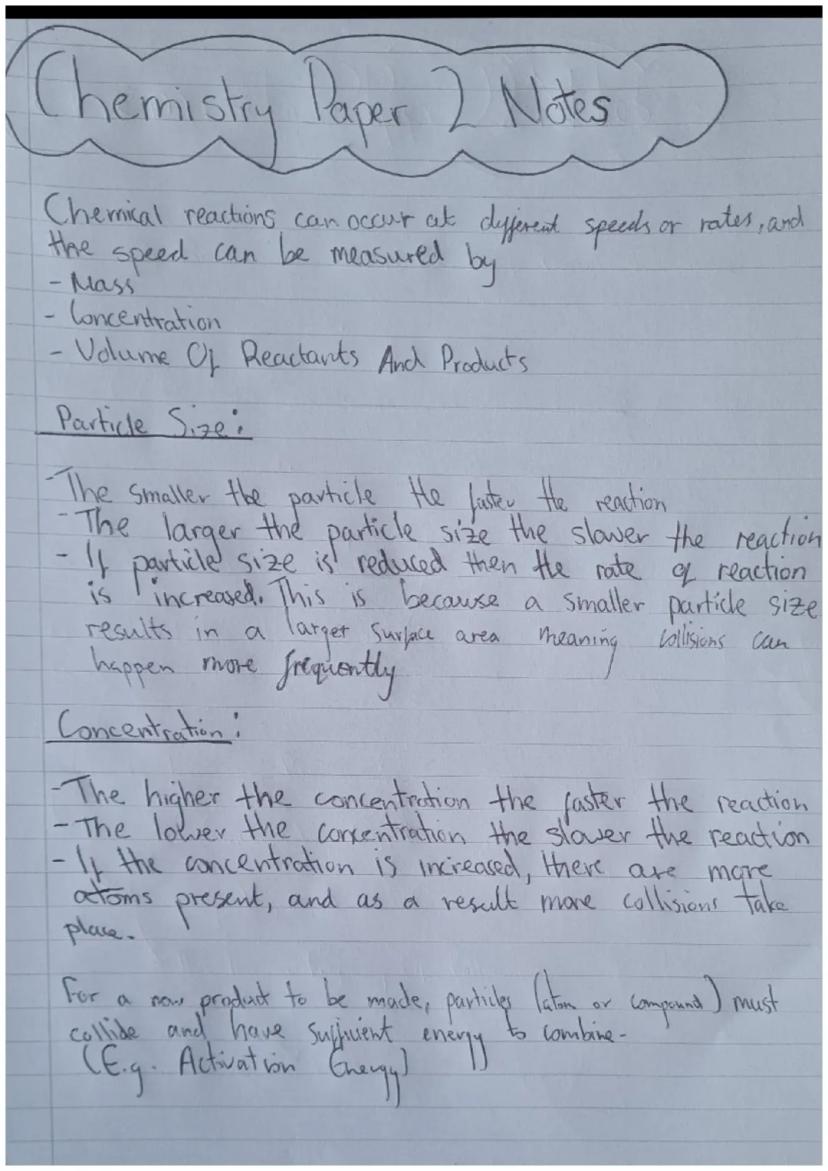 Chemistry Paper 2 Notes
Chemical reactions can occur at different speeds or rates, and
the speed can be measured by
- Mass
- Concentration
- Volume Of Reactants And Products
Particle Size:
- The smaller the particle the faster the reaction
- The larger the particle size the slower the reaction
- If particle size is reduced then the rate of reaction
is increased. This is because a smaller particle size
results in a larger surface area meaning collisions can
happen more frequently
Concentration:
- The higher the concentration the faster the reaction
- The lower the concentration the slower the reaction
- If the concentration is increased, there are more
atoms present, and as a result more collisions take
place.
For a new product to be made, particles (atom or compound) must
collide and have sufficient energy to combine.
(E.g. Activation Energy)